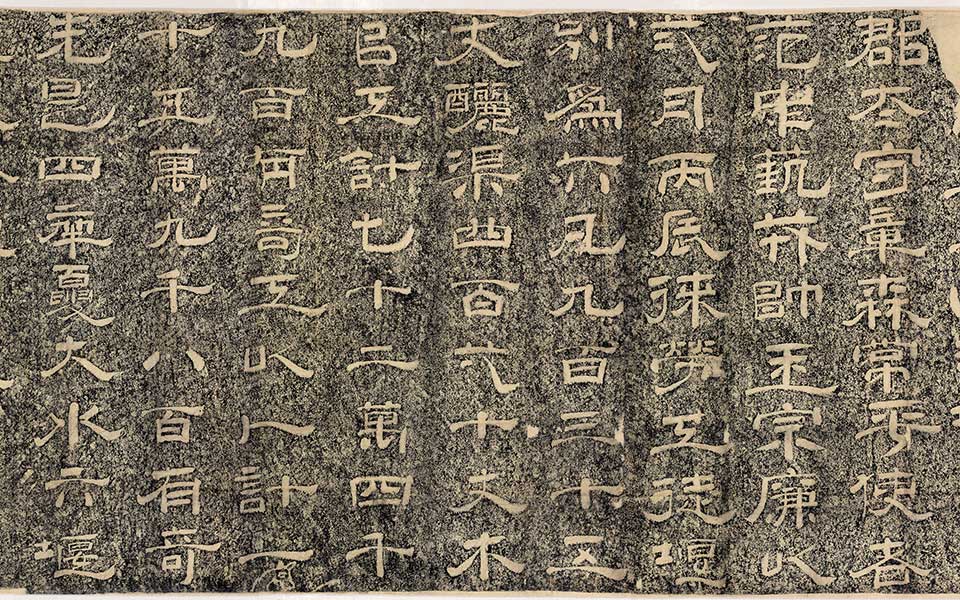 郡太守章森常平使者
范仲埶戎帥王宗廉以
弍月丙辰徠勞工徒堰
別為六凡九百三十五
丈釃渠四百弌十丈木
㠯工計七十二萬四千
九百有奇工以人計一
十五萬九千八百有奇
先是四年夏大水六堰